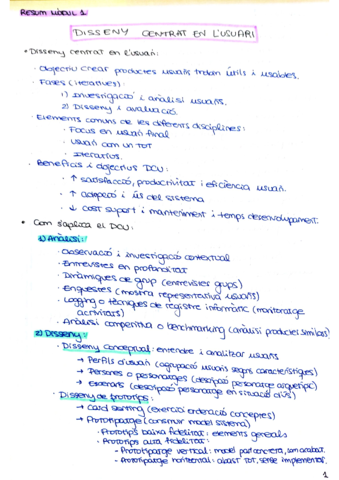 RESUM MÒDUL 1
DISSENY CENTRAT EN L'USUARI
• Disseny centrat en l'usuari:
· Objectiu crear productes usuaris trobin útils i usables.
· Fases (iteratives):
1) Investigació i anàlisi usuaris.
2) Disseny i avaluació.
· Elements comuns de les diferents disciplines:
· Focus en usuari final
· Usuari com un TOT
· Iteratius.
· Beneficis i objectius DCU:
· ↑ satisfacció, productivitat i eficiència usuari.
· ↑ adopció i ús del sistema
· ↓ cost suport i manteniment i temps desenvolupament.
• Com s'aplica el DCU:
1) Anàlisi:
· Observació i investigació contextual
· Entrevistes en profunditat
· Dinàmiques de grup (entrevistes grups)
· Enquestes (mostra representativa usuaris)
· Logging o tècniques de registre informàtic (monitoratge
activitats)
· Anàlisi competitiva o benchmarking (anàlisi productes similars)
2) Disseny:
· Disseny Conceptual: entendre i analitzar usuaris
→ Perfils d'usuari (agrupació usuaris segons característiques)
→ Persones o personatges (descripció personatge arquetípic)
→ Escenaris (descripció personatge en situació d'ús)
· Disseny de prototips:
→ Card sorting (exercici ordenació conceptes)
→ Prototipatge (construir model sistema)
· Prototips baixa fidelitat: elements generals
· Prototips alta fidelitat:
- Prototipatge vertical: model part concreta, com acabat.
- Prototipatge horitzontal: abast TOT, sense implementar.
1